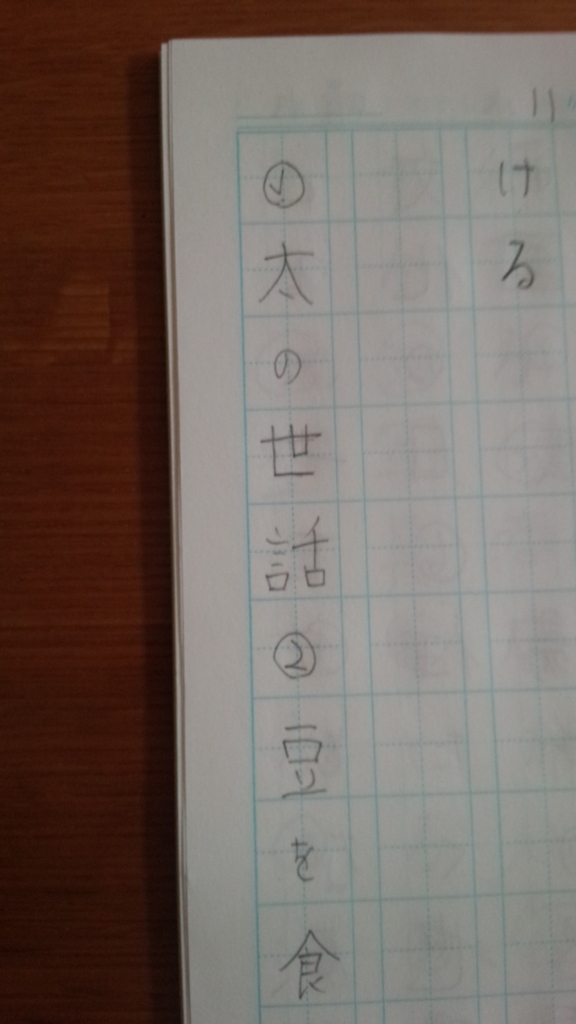 ける
①太の世話②豆を食